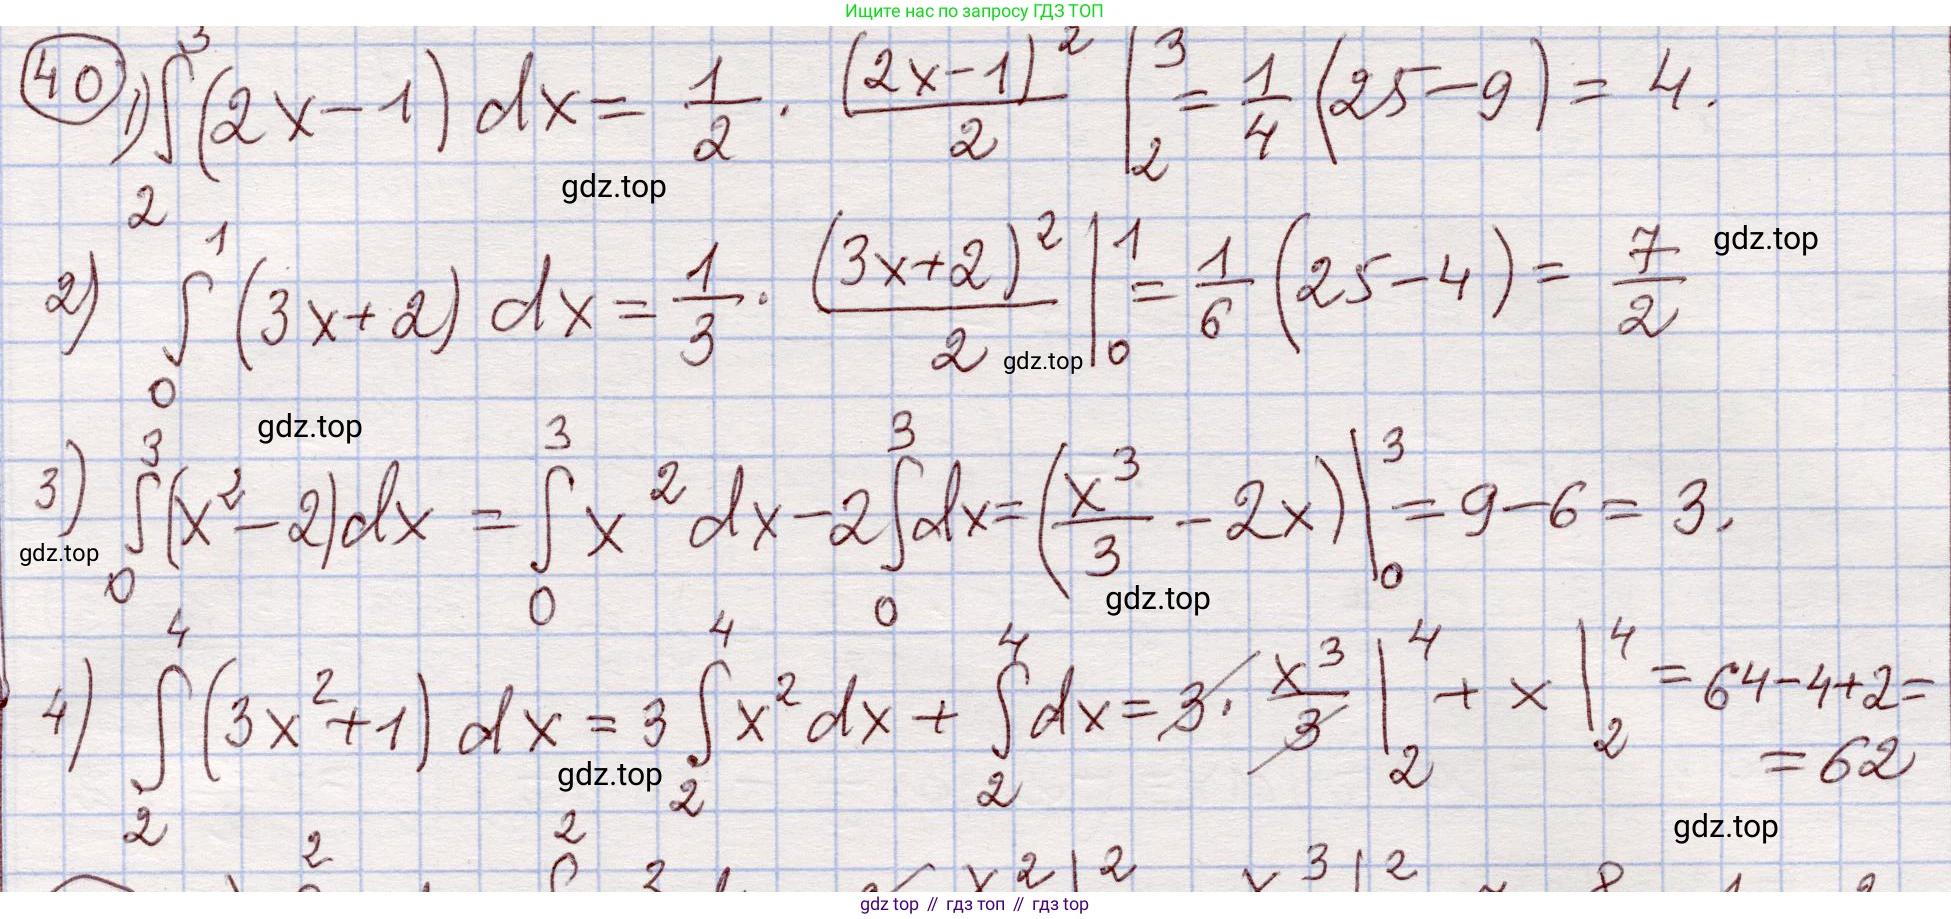 Ищите нас по запросу ГДЗ ТОП
40 1) ∫₂³ (2x-1) dx = 1/2 · (2x-1)²/2 |₂³ = 1/4 (25-9) = 4.
gdz.top
2) ∫₀¹ (3x+2) dx = 1/3 · (3x+2)²/2 |₀¹ = 1/6 (25-4) = 7/2
gdz.top
gdz.top
gdz.top
3) ∫₀³ (x²-2)dx = ∫₀³ x² dx - 2∫₀³ dx = (x³/3 - 2x)|₀³ = 9-6 = 3.
gdz.top
gdz.top
4) ∫₂⁴ (3x²+1) dx = 3∫₂⁴ x² dx + ∫₂⁴ dx = 3 · x³/3 |₂⁴ + x |₂⁴ = 64-4+2=
= 62
gdz.top
gdz.top
gdz top // гдз топ // гдз top